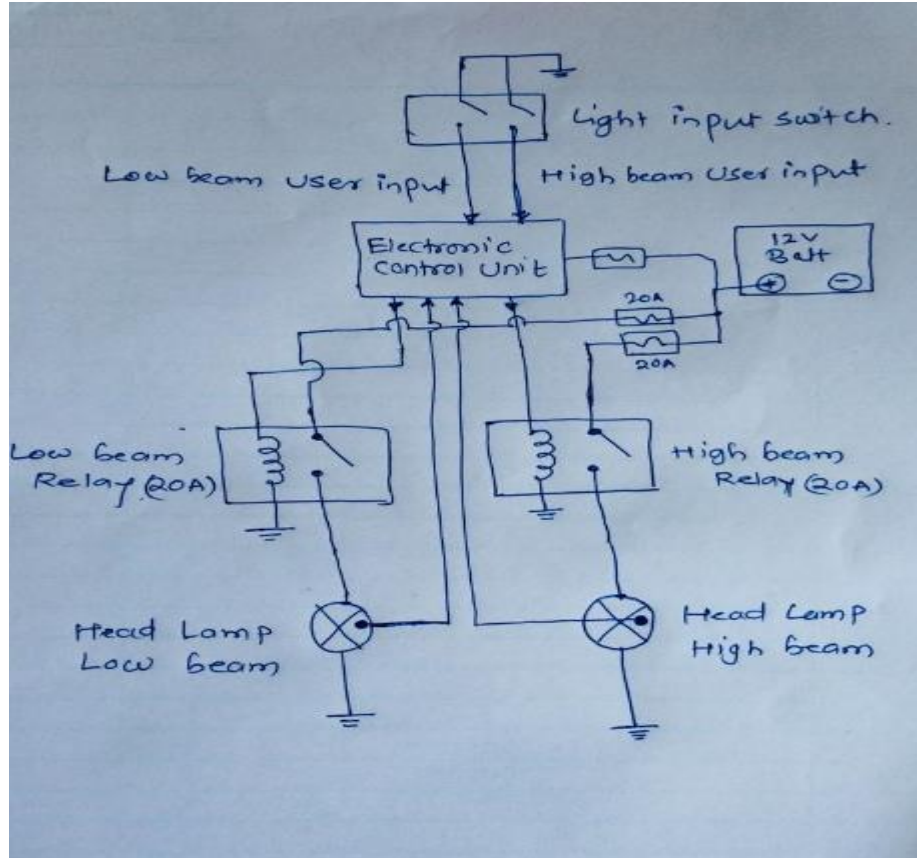 Light input switch.
Low beam User input
High beam User input
Electronic
Control Unit
12V
Batt
+
-
20A
20A
Low beam
Relay (20A)
High beam
Relay (20A)
Head Lamp
Low beam
Head Lamp
High beam